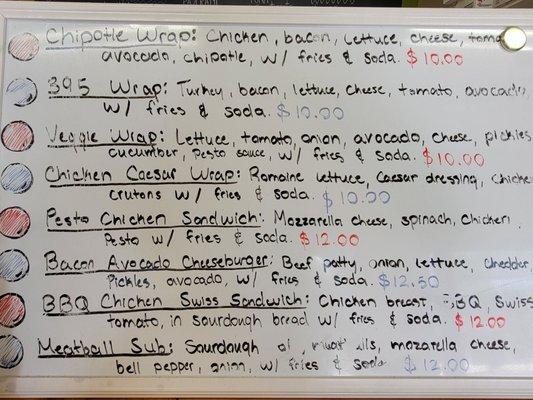 Chipotle Wrap: Chicken, bacon, lettuce, cheese,
avocado, chipotle, w/ fries & soda. $10.00
395 Wrap: Turkey, bacon, lettuce, cheese, tomato, avocado,
w/ fries & soda. $10.00
Veggie Wrap: Lettuce, tomato, onion, avocado, cheese, pickles
cucumber, pesto sauce, w/ fries & soda. $10.00
Chicken Caesar Wrap: Romaine lettuce, caesar dressing,
crutons w/ fries & soda. $10.00
Pesto Chicken Sandwich: Mozzarella cheese, spinach, chicken,
Pesto w/ fries & soda. $12.00
Bacon Avocado Cheeseburger: Beef patty, onion, lettuce, cheddar,
Pickles, avocado, w/ fries & soda. $12.50
BBQ Chicken Swiss Sandwich: Chicken breast, BBQ, Swiss
tomato, in sourdough bread w/ fries & soda. $12.00
Meatball Sub: Sourdough mozarella cheese,
bell pepper, onion, w/ fries & soda $12.00